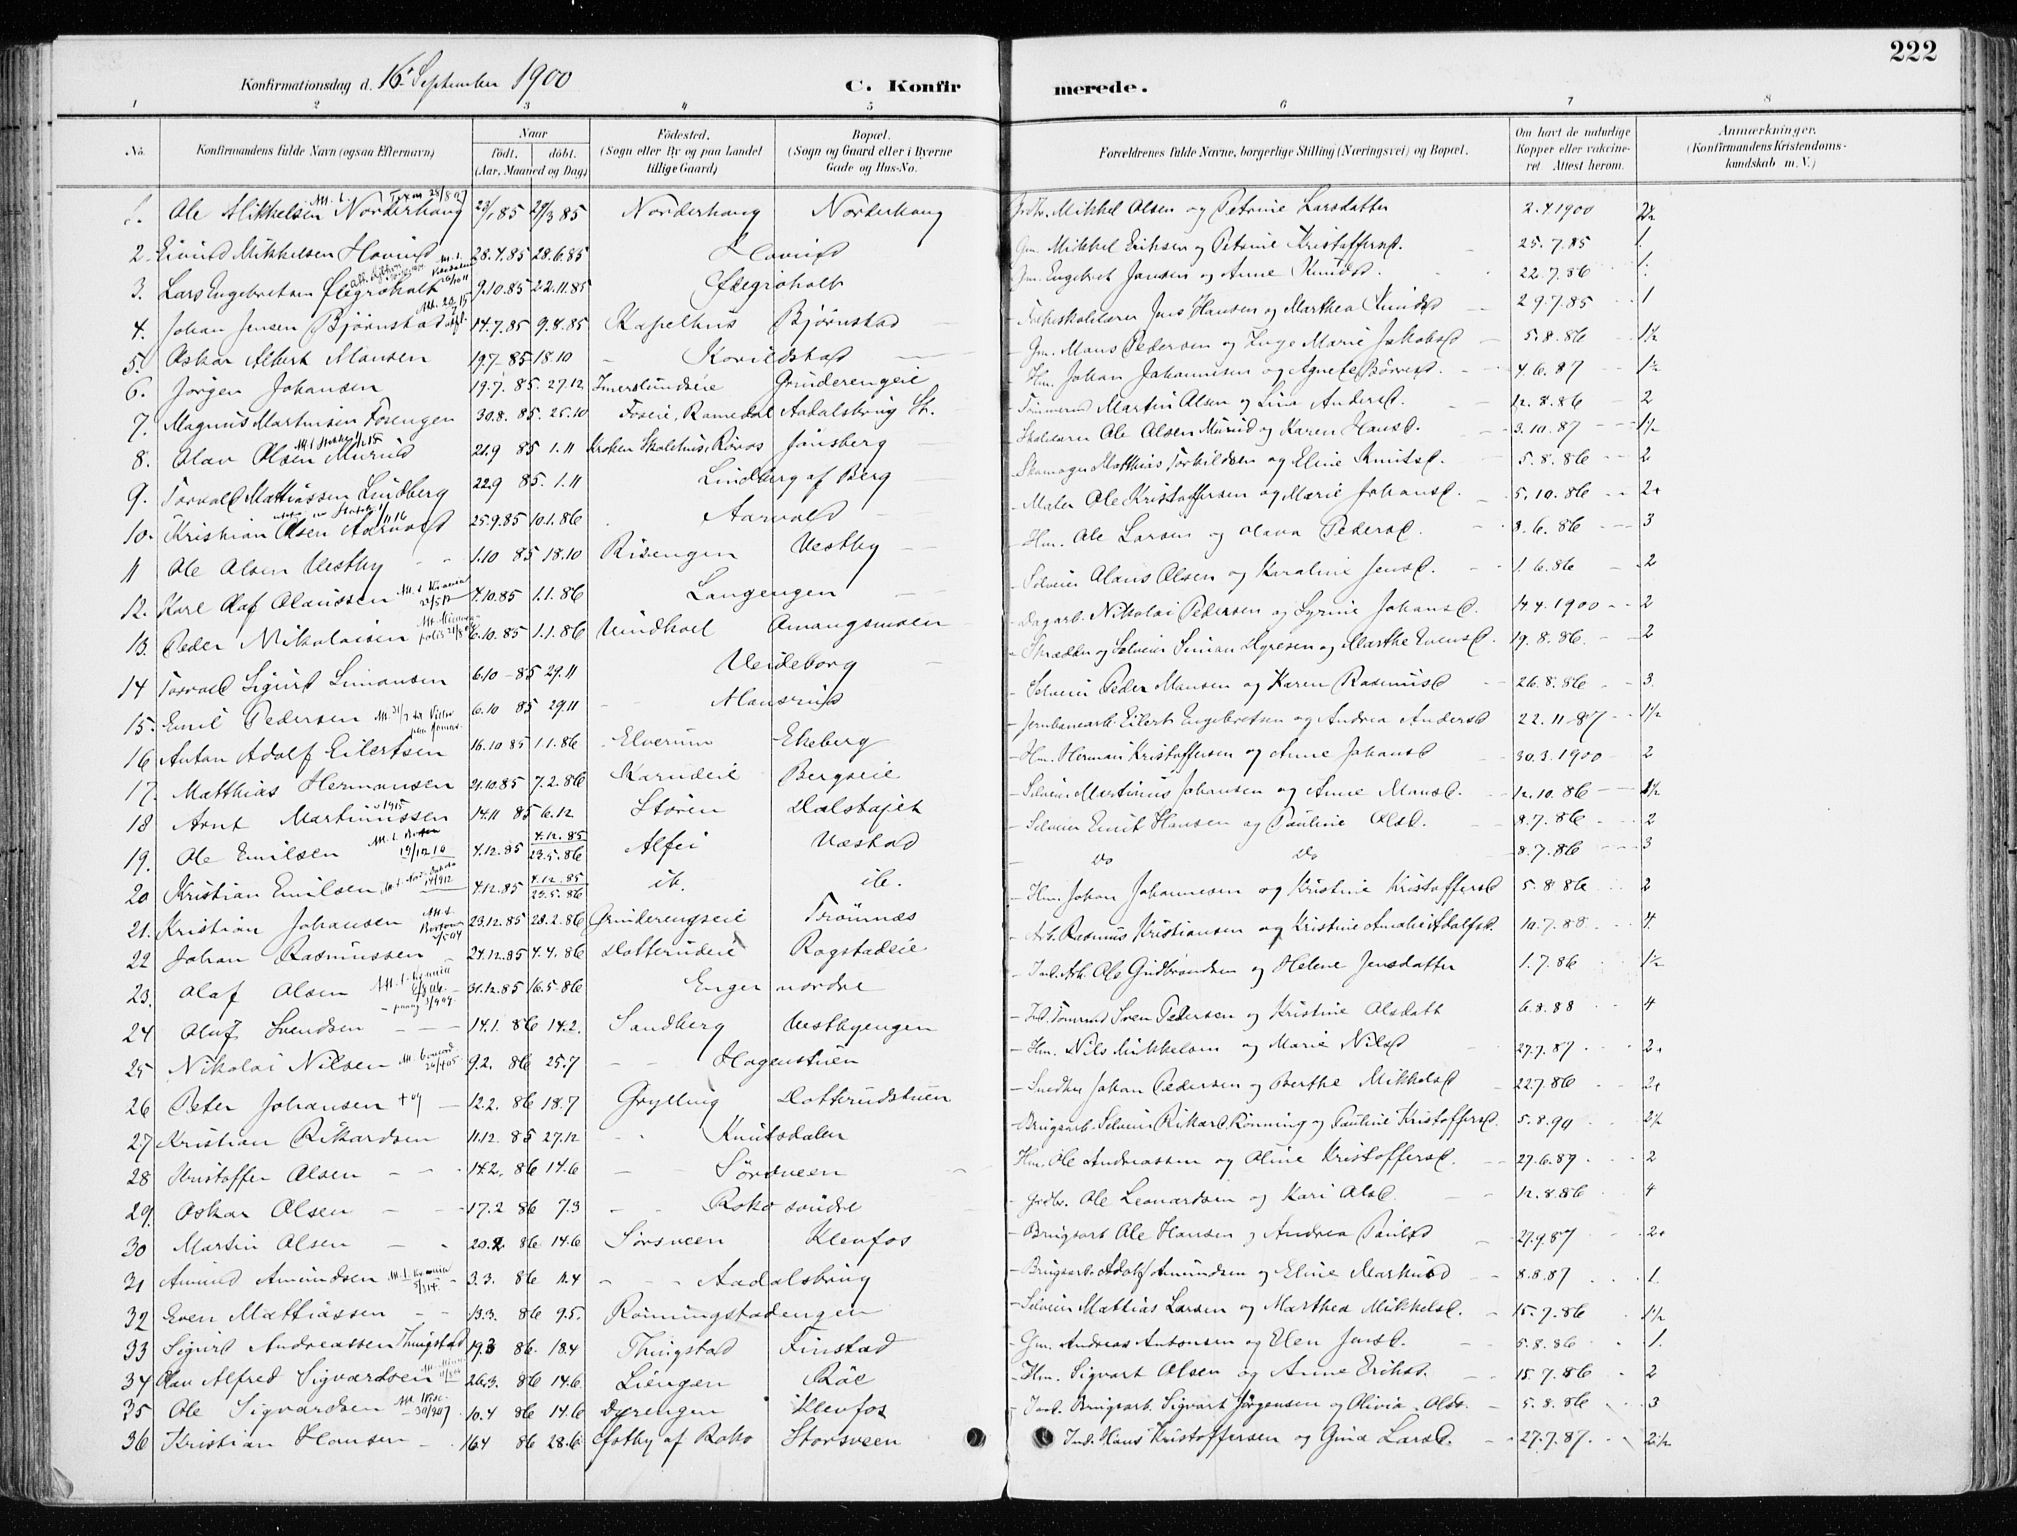 222
Konfirmationsdag d. 16. September 1900
C. Konfirmerede.
1 2 3 4 5 6 7 8
No. Konfirmandens fulde Navn (ogsaa Efternavn) Naar födt. döbt. (Aar, Maaned og Dag) Födested. (Sogn eller By og paa Landet tillige Gaard) Bopæl. (Sogn og Gaard eller i Byerne Gade og Hus-No. Forældrenes fulde Navne, borgerlige Stilling (Næringsvei) og Bopæl. Om havt de naturlige Kopper eller vakcineret Attest herom. Anmærkninger. (Konfirmandens Kristendomskundskab m. V.)
1. Ole Mikkelsen Norderhaug 85 85 Norderhaug Norderhaug Grdbr. Mikkel Olsen og Petrine Larsdatter 2.4.1900
2. Eivind Mikkelsen Hovind 28.4.85 28.6.85 Hovind Gm. Mikkel Eriksen og Petrine Kristoffersd. 25.7.85 1.
3. Lars Engebretsen 9.10.85 22.11.85 Gm. Engebret Jansen og Anne Knudsd. 22.7.86 1.
4. Johan Jensen Bjørnstad 14.7.85 9.8.85 Kapelhus Bjørnstad Jens Hansen og Marthea 29.7.85 1
5. Oskar Albert Mansen 19.7-85 18.10 Korildstad Gm. Mans Pedersen og Inge Marie Jakobsd 5.8.86 1½
6. Jørgen Johansen 19.7.85. 27.12 Imerslundseie Grinderengeie Hm. Johan Johannesen og Agnete 4.6.87 1½
7. Magnus Martinsen Fosengen 30.8.85. 25.10 Foseie, Romedal Aadalsbrug St. Martin Olsen og Lina Andersd. 12.8.86 2
8. Olav Olsen Murud 21.9 85 1.11 Kroken Skolehus, Røros Jønsberg Skolelærer Ole Olsen Murud og Karen Hansd. 3.10.87 1½
9. Torvald Mattiassen Lindberg 22.9 85. 1.11 Lindberg af Berg Skomager Matthias Torkildsen og Eline Knutsd. 5.8.86 2
10. Kristian Olsen Aarvold 25.9.85 10.1.86 Aarvold Maler Ole Kristoffersen og Marie Johansd. 5.10.86 2+
11 Ole Olsen Vestby 1.10 85 18.10 Risengen Vestby Hm. Ole Larsen og Olava Pedersd. 8.6.86 3
12. Karl Olaf Olaussen 4.10.85 1.1.86 Langengen Selveier Olaus Olsen og Karoline Jensd. 1.6.86 2
13. Peder Nikolaisen 6.10.85 1.1.86 Vindkvel Amangsmoen Dagarb. Nikolai Pedersen og Syrine Johansd. 14.4.1900 2
14 Torvald Sigurd Simonsen 6.10-85 29.11 Veideborg Skrædder og Selveier Simon Syresen og Marthe Evensd. 19.8.86. 2
15. Emil Pedersen 6.10 85 29.11 Mansrud Selveier Peder Mansen og Karen Rasmusd 26.8.86 3
16 Anton Adolf Eilertsen 16.10 85 1.1.86 Elverum Ekeberg Jernbanearb. Eilert Engebretsen og Andrea Andersd 22.11.87 1½
17. Matthias Hermansen 21.10.85 7.2.86 Karudeie Bergseie Hm. Herman Kristoffersen og Anne Johansd 30.3.1900 2
18 Arnt Martinussen 14.11 85 6.12 Støren Dalstøjet Selveier Martinus Johansen og Anne Mansd. 12.10.86 1½
19. Ole Emilsen 4.12.85 4.12.85 23.5.86 Alfei Væstad Selveier Emil Hansen og Pauline Olsd. 8.7.86 2
20 Kristian Emilsen 4.12.85 4.12.85 23.5.86 ib. ib. Do Do 8.7.86 3
21. Kristian Johansen 23.12.85 28.2.86 Grinderengseie Frømnæs Hm. Johan Johannesen og Kristine Kristoffersd 5.8.86 2
22 Johan Rasmussen 24.12.85 4.4.86 Dotterudeie Rogstadeie Arb. Rasmus Kristiansen og Kristine Amalie Adolfsd. 10.7.88. 4
23. Olaf Olsen 31.12.85 16.5.86 Enger nordre Ind. Arb. Ole Gudbrandsen og Helene Jensdatter 1.7.86 1½
24 Oluf Svendsen 14.1. 86 14.2. Sandberg Vestbyengen Sven Pedersen og Kristine Olsdatt 6.8.88 4
25 Nikolai Nilsen 9.2. 86 25.7 Hagenstuen Hm. Nils Mikkelsen og Marie Nilsd 27.7.87 2+
26 Peter Johansen 12.2. 86 18.7 Grylling Dotterudstuen Snedker Johan Pedersen og Berthe Mikkelsd 22.7.86 2+
27 Kristian Rikardsen 11.12. 85 27.12 Knutsdalen Brugsarb. Selveier Rikard Rønning og Pauline Kristoffersd. 5.8.90 2½
28 Kristoffer Olsen 14.2. 86 14.6 Sørsveen Hm. Ole Andreassen og Oline Kristoffersd. 27.6.87 2
29. Oskar Olsen 17.2 86 7.3 Roko søndre Grdbr. Ole Leonardsen og Kari Olsd. 12.8.86 4
30 Martin Olsen 20.2 86 14.6 Sørsveen Klevfos Brugsarb Ole Hansen og Andrea Paulsd 27.7.87 2+
31 Amund Amundsen 3.3. 86 11.4 Aadalsbrug Brugsarb. Adolf Amundsen og Eline Markusd 8.8.87 1.
32 Even Mattiassen 13.3. 86 9.5. Rønningstadengen Selveier Mattias Larsen og Marthea Mikkelsd. 15.7.86 1½
33 Sigurd Andreassen Thingstad 19.3 86. 18.4 Thingstad Finstad Gm. Andreas Antonsen og Elen Jensd. 5.8.86 1.
34 Olav Alfred Sigvardsen 26.3. 86 14.6 Liengen Bøe Hm. Sigvart Olsen og Anne Eriksd. 15.7.86 2
35 Ole Sigvardsen 10.4 86 14.6 Dyrengen Klevfos Ind. Brugsarb. Sigvart Jørgensen og Olivia Olsd. 5.8.86 3
36 Kristian Hansen 16.4 86 28.6 af Roko Storsveen Ind. Hans Kristoffersen og Gina Larsd. 27.7.87. 2½